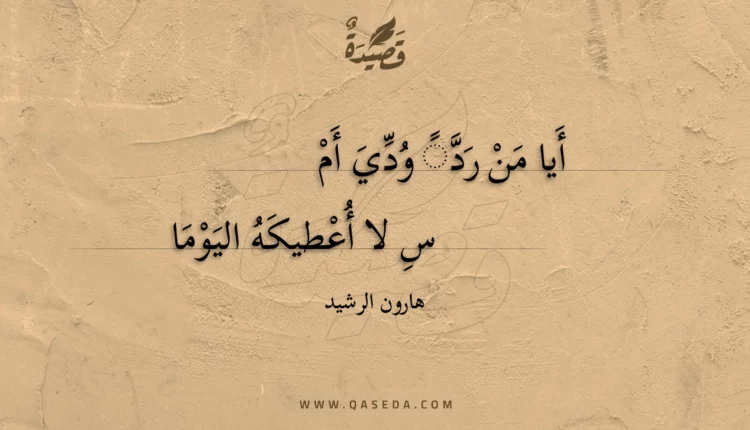 قَصِيدَةٌ
أَيا مَنْ رَدَّ◌ً وُدِّيَ أَمْ
سِ لا أُعْطيكَهُ اليَوْمَا
هارون الرشيد
WWW.QASEDA.COM